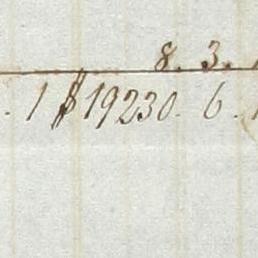 8. 3.
. 1 $ 19230. 6.